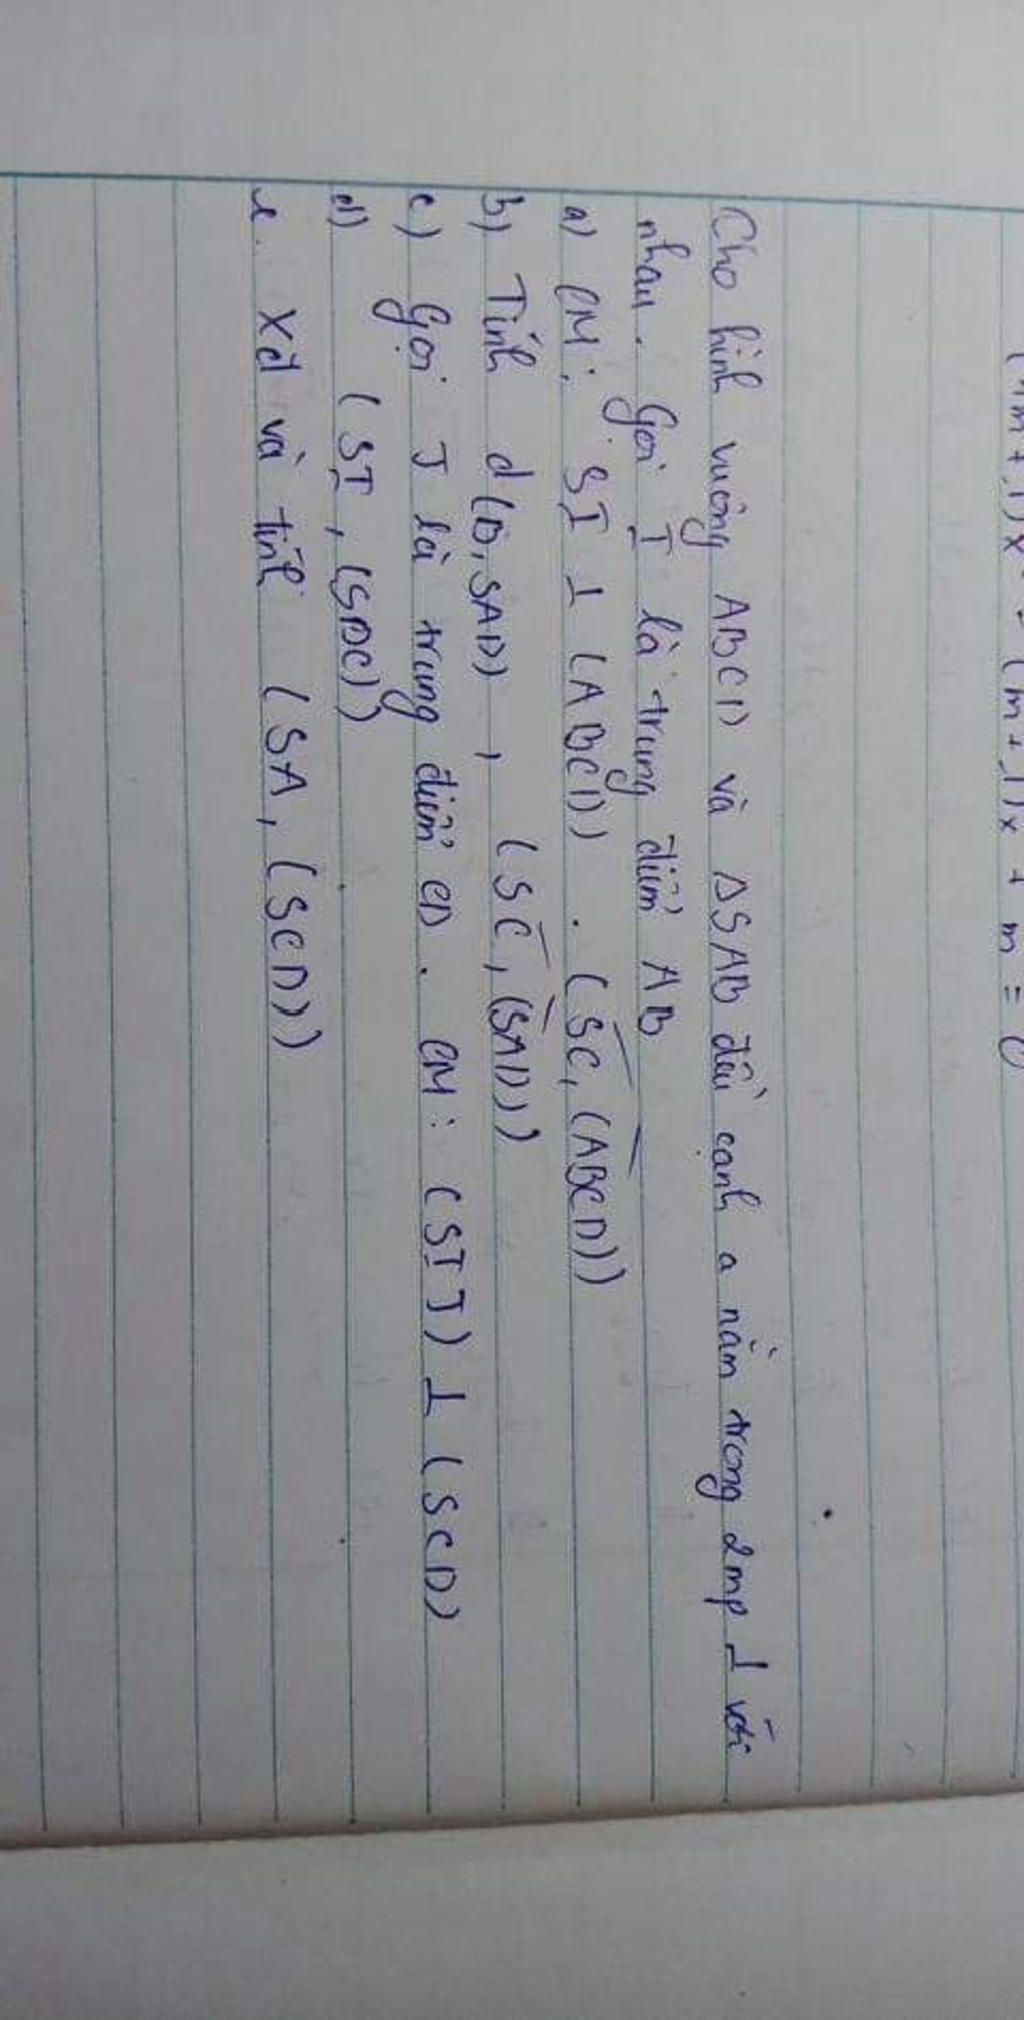 (m+1)x + m = 0
Cho hình vuông ABCD và ΔSAB đều cạnh a nằm trong 2mp ⊥ với
nhau. Gọi I là trung điểm AB
a) CM: SI ⊥ (ABCD). (SC, (ABCD))
b) Tính d(B, SAD), (SC, (SAD))
c) Gọi J là trung điểm CD. CM: (SIJ) ⊥ (SCD)
d) (SI, (SDC))
e. Xđ và tính (SA, (SCD))